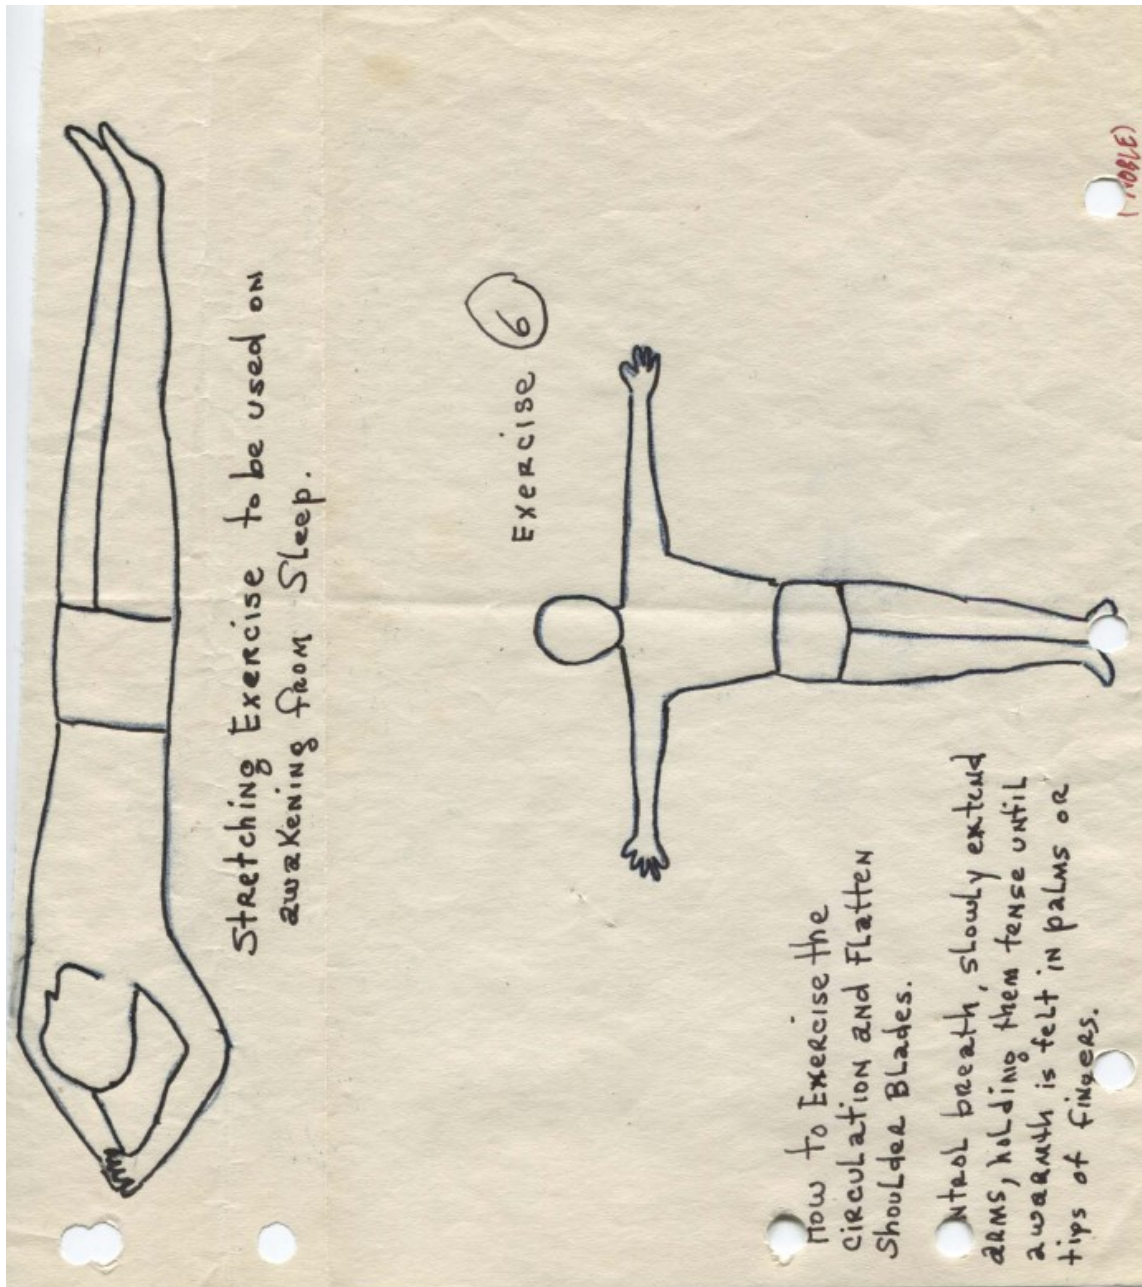 Stretching Exercise to be used on
awakening from Sleep.
Exercise 6
How to Exercise the
circulation and Flatten
Shoulder Blades.
ntrol breath, slowly extend
arms, holding them tense until
a warmth is felt in palms or
tips of fingers.
(NOBLE)